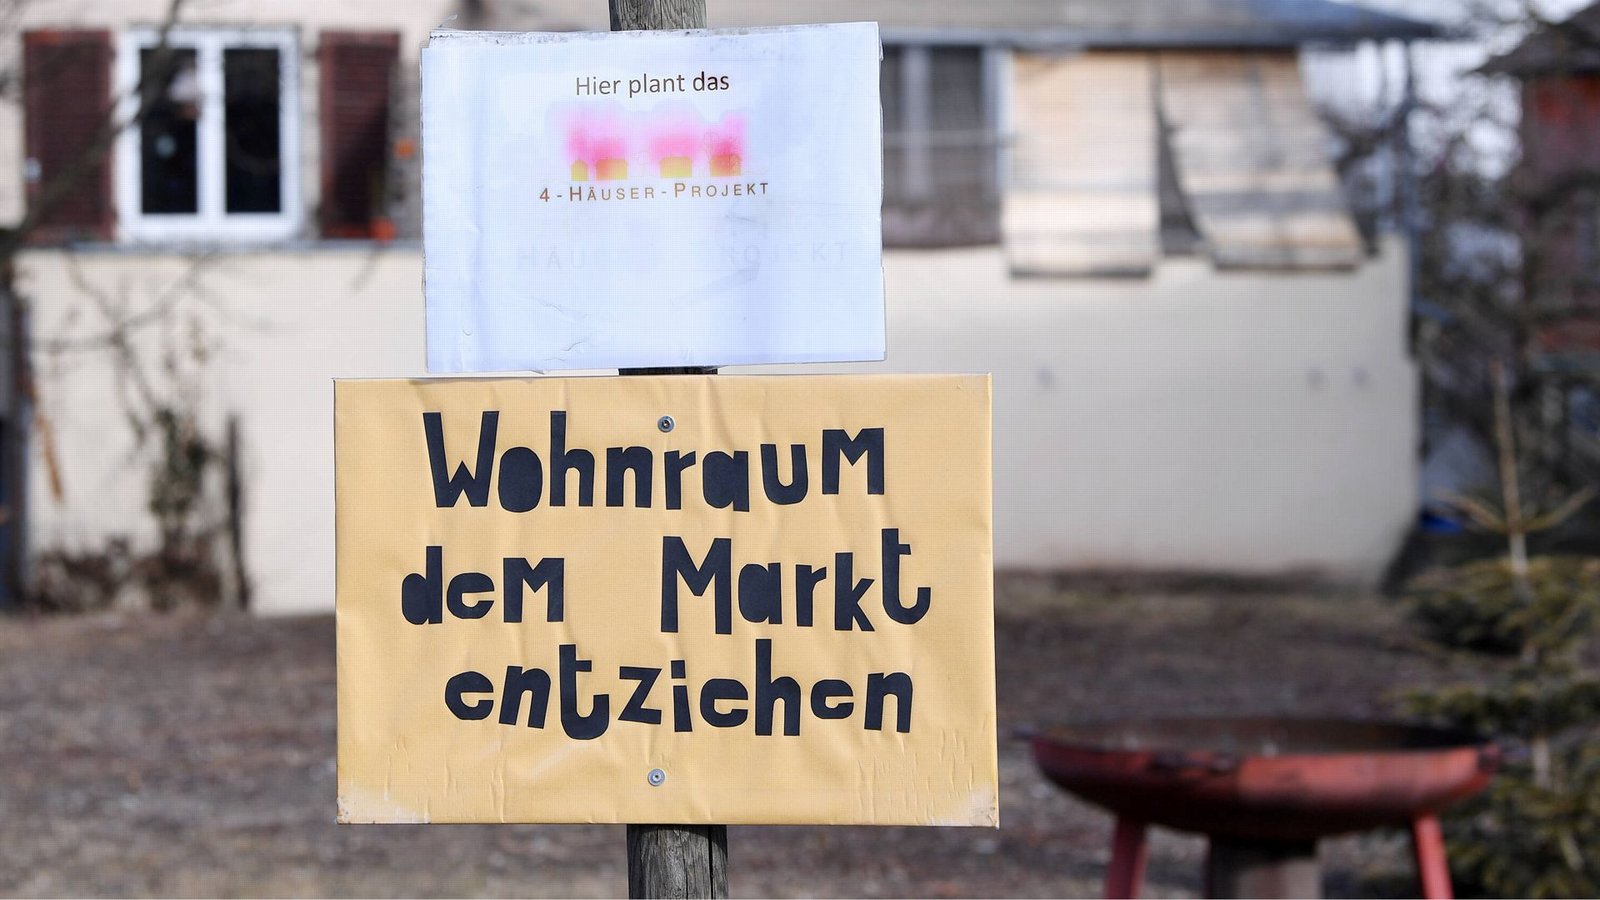 Hier plant das
4-HÄUSER-PROJEKT
Wohnraum
dem Markt
entziehen